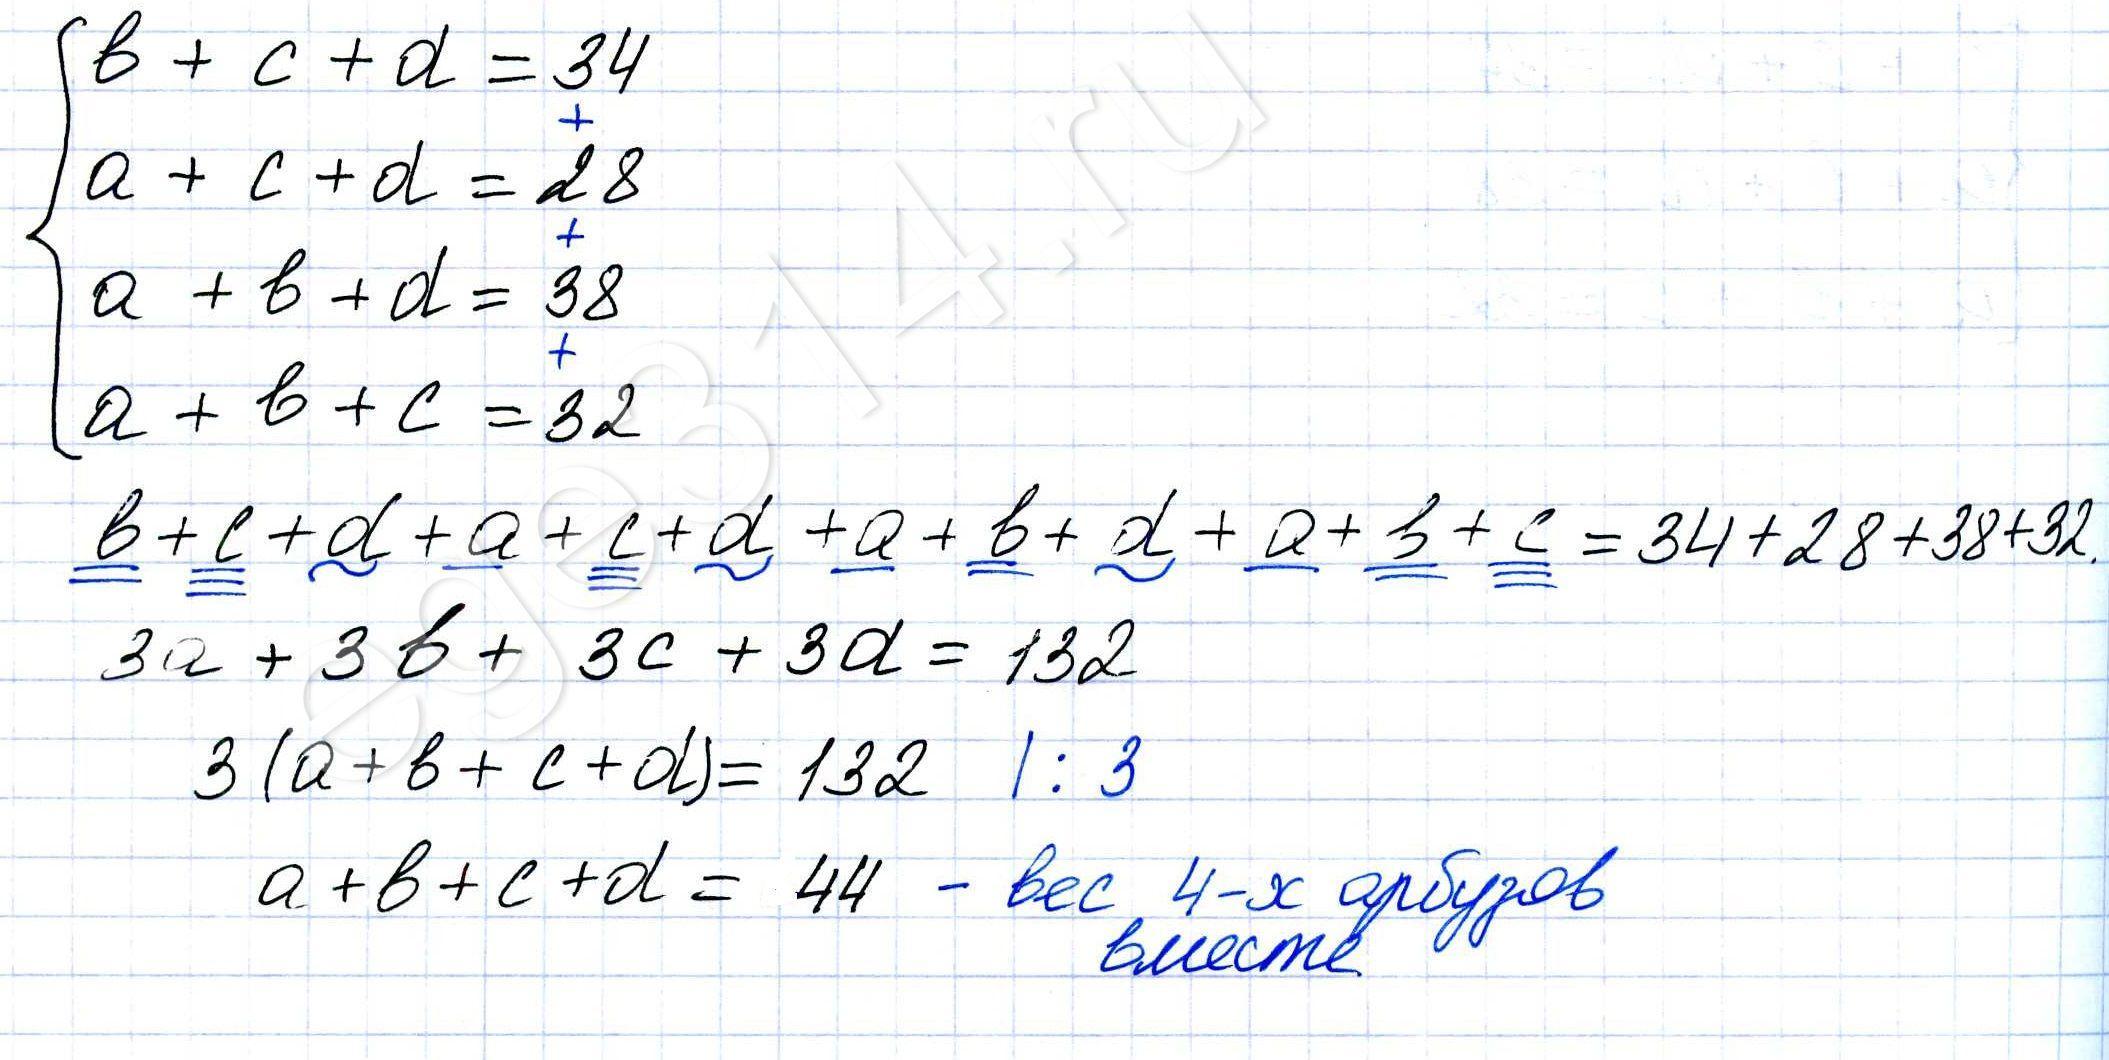 b + c + d = 34
+
a + c + d = 28
+
a + b + d = 38
+
a + b + c = 32
b + c + d + a + c + d + a + b + d + a + b + c = 34 + 28 + 38 + 32.
3a + 3b + 3c + 3d = 132
3(a + b + c + d) = 132 | : 3
a + b + c + d = 44 - вес 4-х арбузов
вместе
ege314.ru